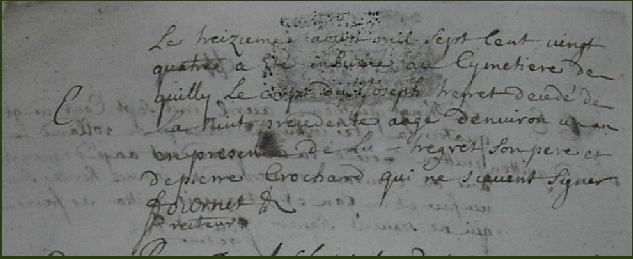 Le treizieme aoust mil sept cent vingt
quatre a été inhumé au Cymetiere de
quilly Le corps de Joseph hegret decedé de
La nuit precedente aagé denviron un an
en presence de hegret son pere et
de pierre Crochard qui ne scavent signer
recteur